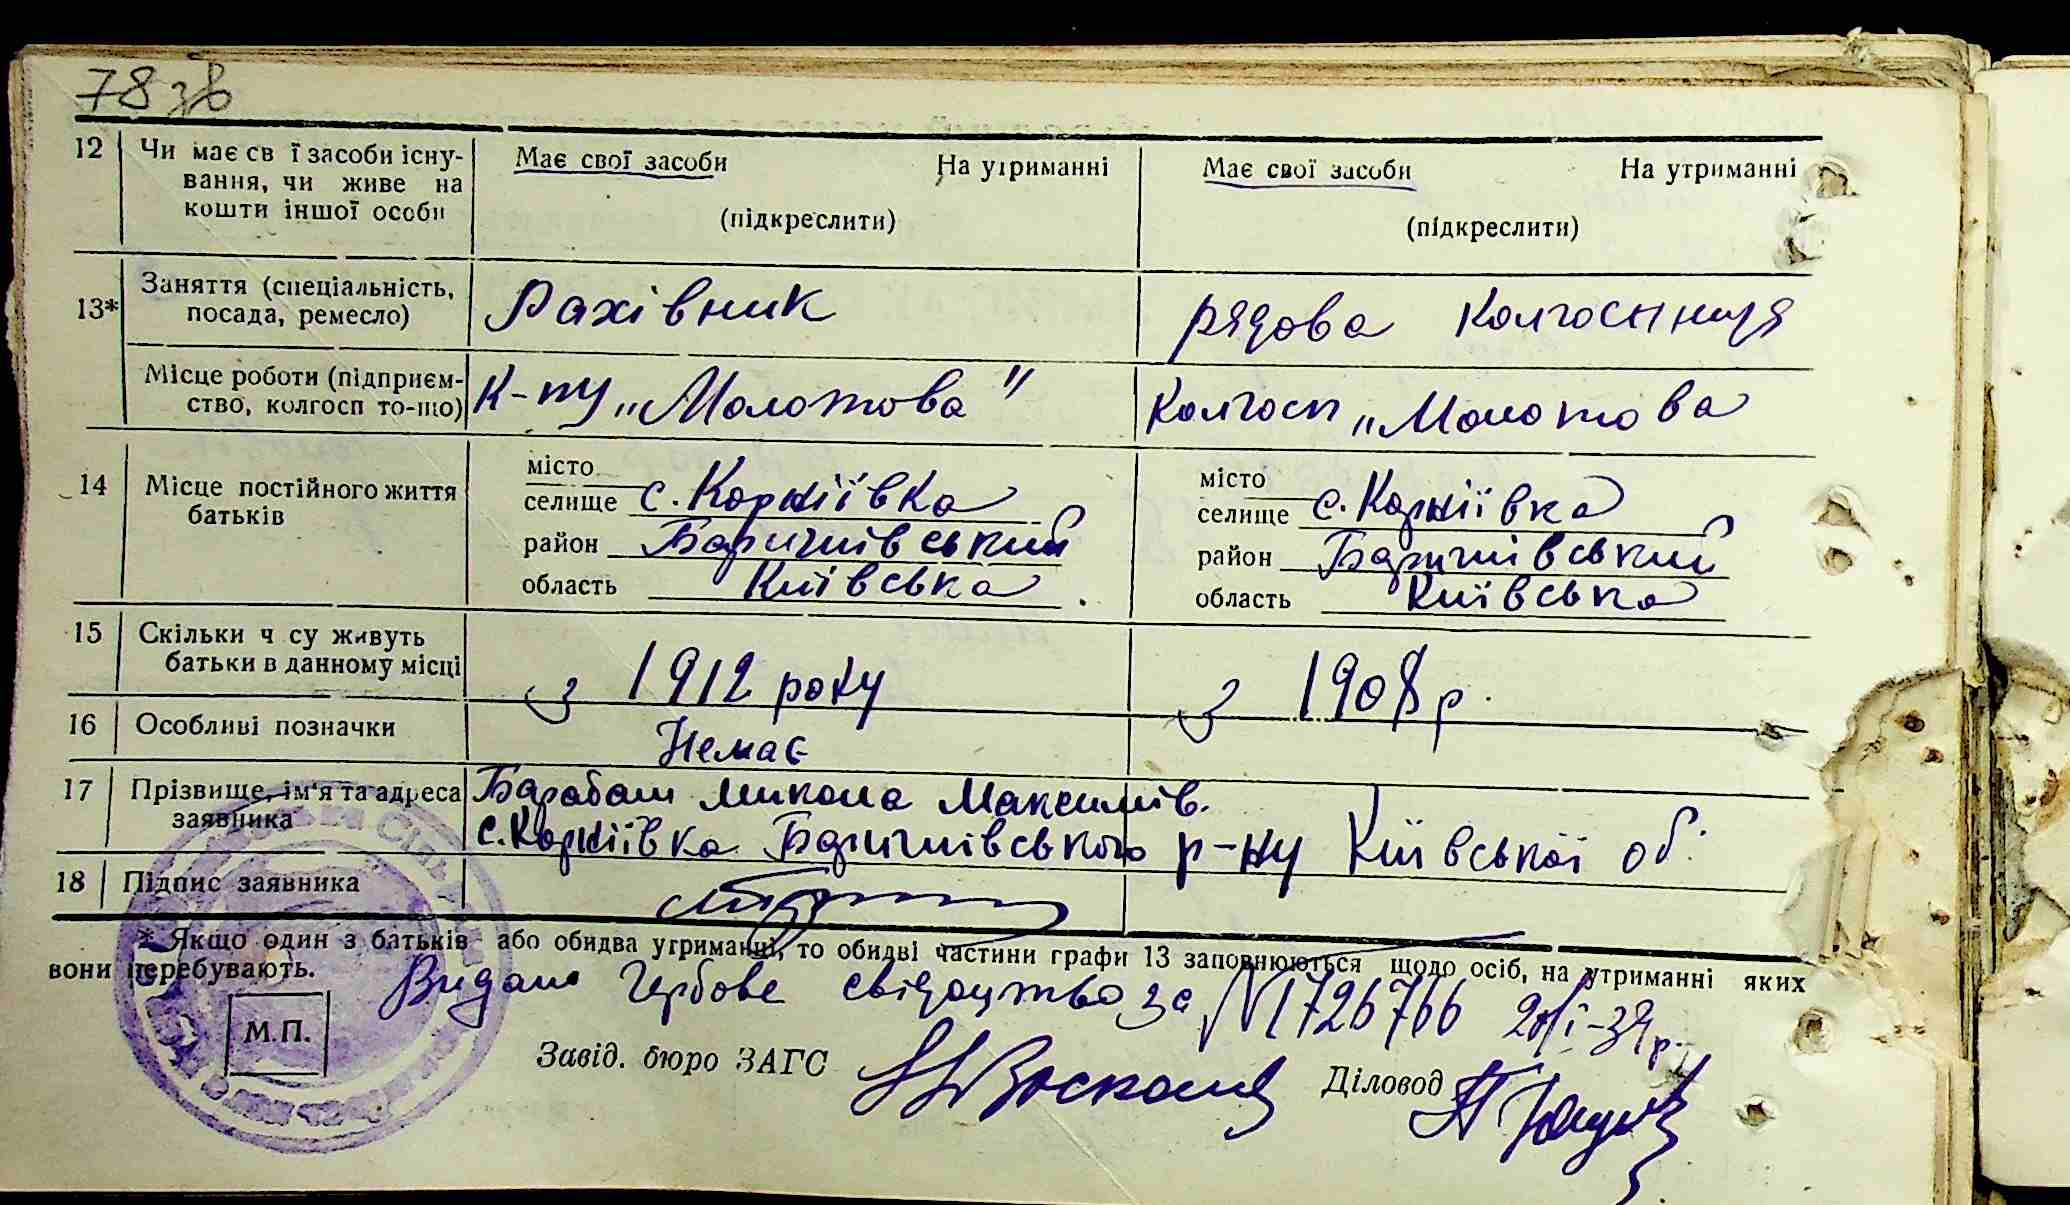 78 зв
12 Чи має св ї засоби існу- Має свої засоби На утриманні Має свої засоби На утриманні
вання, чи живе на
кошти іншої особи (підкреслити) (підкреслити)
13* Заняття (спеціальність, Рахівник рядова колгоспниця
посада, ремесло)
Місце роботи (підприєм- К-пу „Молотова" Колгосп „Молотова
ство, колгосп то-що)
14 Місце постійного життя місто місто
батьків селище с. Корніївка селище с. Корніївка
район Баришівський район Баришівський
область Київська область Київська
15 Скільки ч су живуть з 1912 року з 1908 р.
батьки в данному місці
16 Особливі позначки Немає
17 Прізвище, ім'я та адреса Барабаш Микола Максимів.
заявника с. Корніївка Баришівського р-ну Київської об.
18 Підпис заявника
* Якщо один з батьків або обидва утриманні, то обидві частини графи 13 заповнюються щодо осіб, на утриманні яких
вони перебувають.
Видано гербове свідоцтво за N 1726766
М.П.
Завід. бюро ЗАГС Діловод